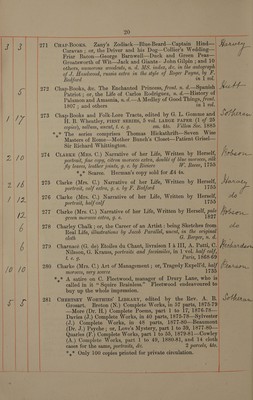 20
3 3 271 CHAP-BOOKS. Zany's Zodiack—Blue-Beard—Captain Hind—
Caravan; or, the Driver and his Dog—Collier's Wedding—
Friar Bacon—George Barnwell—Duck and Green Peas—
Groatsworth of Wit—Jack and Giants—John Gilpin; and 10
others, numerous woodcuts, n. d. MS. index, &c. in the autograph
of J. Haslewood, russia extra in the style of Roger Payne, by F.
Bedford in 1 vol.
5 272 Chap-Books, &c. The Enchanted Princess, front. n. d.—Spanish
Patriot; or, the Life of Carlos Rodriguez, n. d.—History of
Polemon and Amasnia, n. d.—A Medley of Good Things, front.
1807; and others in 1 vol.
1 17 273 Chap-Books and Folk-Lore Tracts, edited by G. L. Gomme and
H. B. Wheatley, FIRST SERIES, 5 vol. LARGE PAPER (1 of 25
copies), vellum, uncut, t. e. g. sm. 4to. Villon Soc. 1885
*** The series comprises Thomas Hickathrift—Seven Wise
Masters of Rome—Mother Bunch's Closet—Patient Grissel—
Sir Richard Whittington.
2 10 274 CLARKE (Mrs. C.) Narrative of her Life, Written by Herself,
portrait, fine copy, citron morocco extra, double of blue morocco, silk
fly leaves, leather joints, g. e. by Bozner W. Reeve, 1755
*** Scarce. Herman's copy sold for £4 4s.
2 16 275 Clarke (Mrs. C.) Narrative of her Life, Written by Herself,
portrait, calf extra, g. e. by F. Bedford 1755
1 12 276 Clarke (Mrs. C.) Narrative of her Life, Written by Herself,
portrait, half calf 1755
12 277 Clarke (Mrs. C.) Narrative of her Life, Written by Herself, pale
green morocco extra, g. e. 1827
6 278 Charley Chalk; or, the Career of an Artist; being Sketches from
Real Life, illustrations by Jacob Parallel, uncut, in the original
cloth G. Berger, n. d.
6 279 Chartann (G. de) Etoiles du Chant, livraison I à III, A. Patti, C.
Nilsson, G. Krauss, portraits and facsimiles, in 1 vol. half calf,
t. e. g. Paris, 1868-69
10 10 280 Clarke (Mrs. C.) Art of Management; or, Tragedy Expell'd, half
morocco, very scarce 1735
*** A satire on C. Fleetwood, manager of Drury Lane, who is
called in it "Squire Brainless." Fleetwood endeavoured to
buy up the whole impression.
5 5 281 CHERTSEY WORTHIES' LIBRARY, edited by the Rev. A. B.
Grosart. Breton (N.) Complete Works, in 37 parts, 1875-79
—More (Dr. H.) Complete Poems, part 1 to 17, 1876-78—
Davies (J.) Complete Works, in 46 parts, 1873-78—Sylvester
(J.) Complete Works, in 48 parts, 1877-80—Beaumont
(Dr. J.) Psyche; or, Love's Mystery, part 1 to 39, 1877-80—
Quarles (F.) Complete Works, part 1 to 53, 1879-81—Cowley
(A.) Complete Works, part 1 to 43, 1880-81, and 14 cloth
cases for the same, portraits, &c. 2 parcels, 4to.
*** Only 100 copies printed for private circulation.